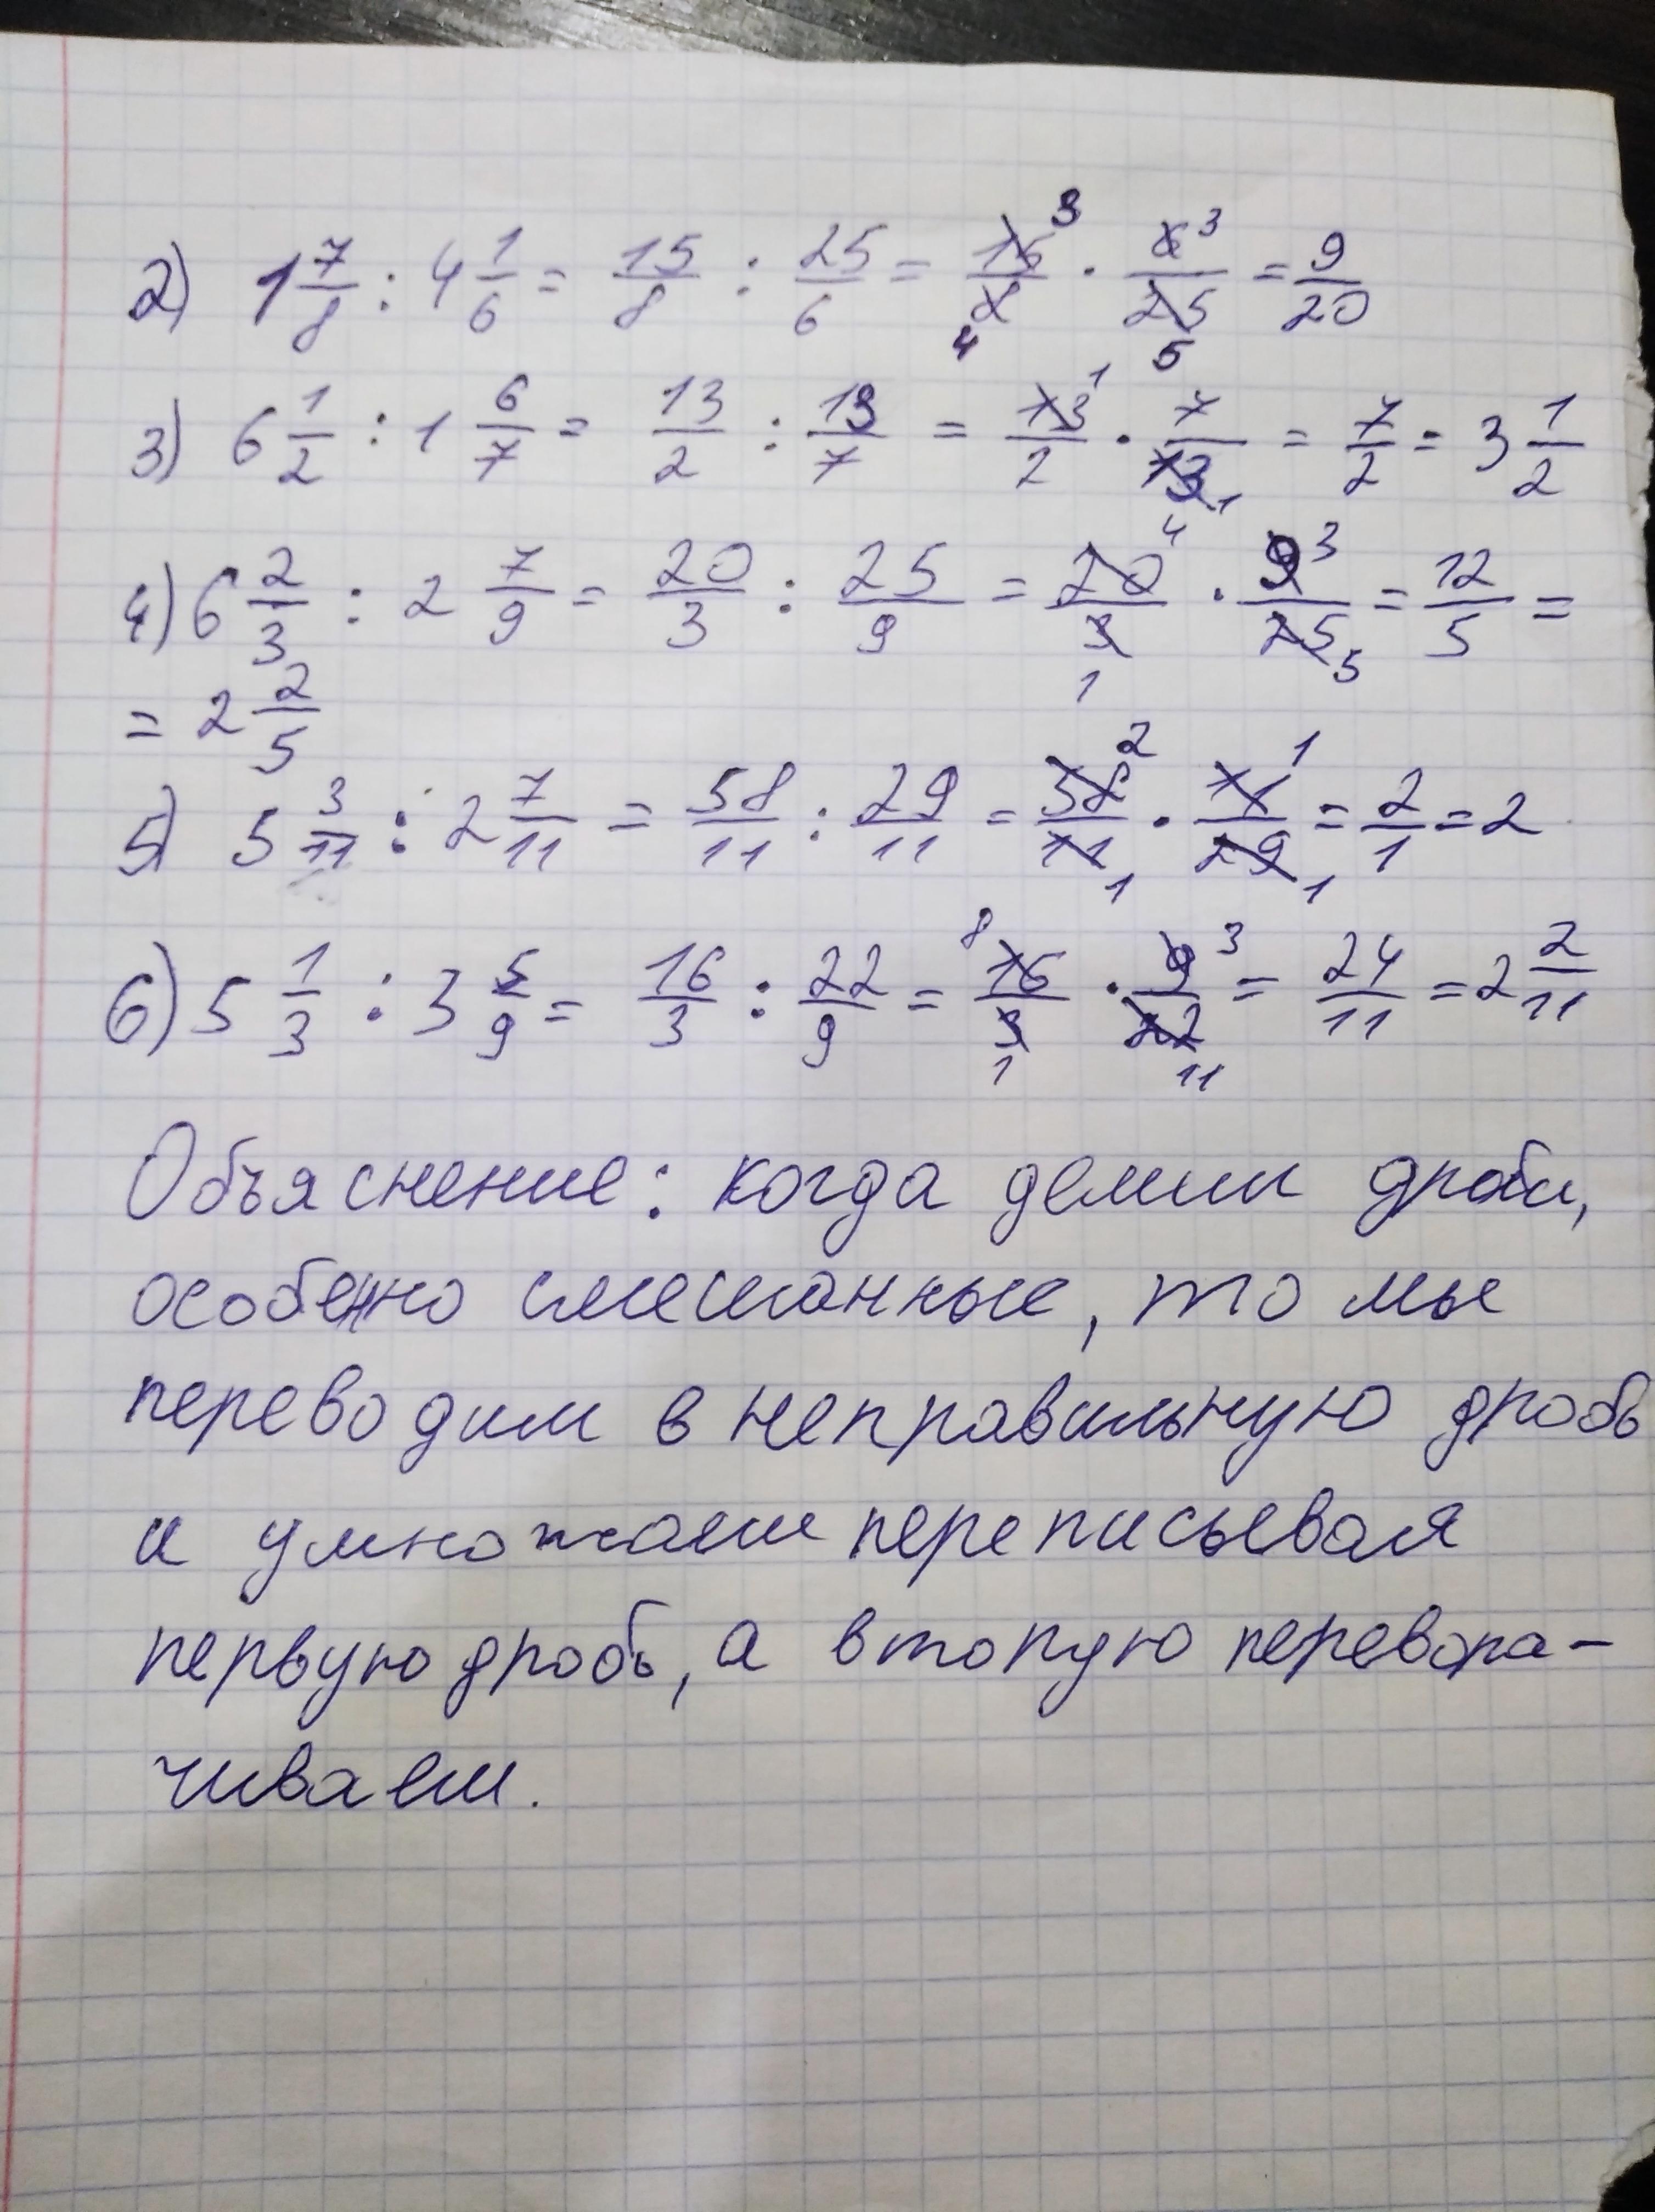 2) 1 7/8 : 4 1/6 = 15/8 : 25/6 = 15/8 3 4 · 6/25 3 5 = 9/20
3) 6 1/2 : 1 6/7 = 13/2 : 13/7 = 13/2 1 · 7/13 1 = 7/2 = 3 1/2
4) 6 2/3 : 2 7/9 = 20/3 : 25/9 = 20/3 4 1 · 9/25 3 5 = 12/5 =
= 2 2/5
5) 5 3/11 : 2 7/11 = 58/11 : 29/11 = 58/11 2 1 · 11/29 1 1 = 2/1 = 2
6) 5 1/3 : 3 5/9 = 16/3 : 22/9 = 16/3 8 1 · 9/22 3 11 = 24/11 = 2 2/11
Объяснение: когда делим дроби,
особенно смешанные, то мы
переводим в неправильную дробь
и умножаем переписывая
первую дробь, а вторую перевора-
чиваем.